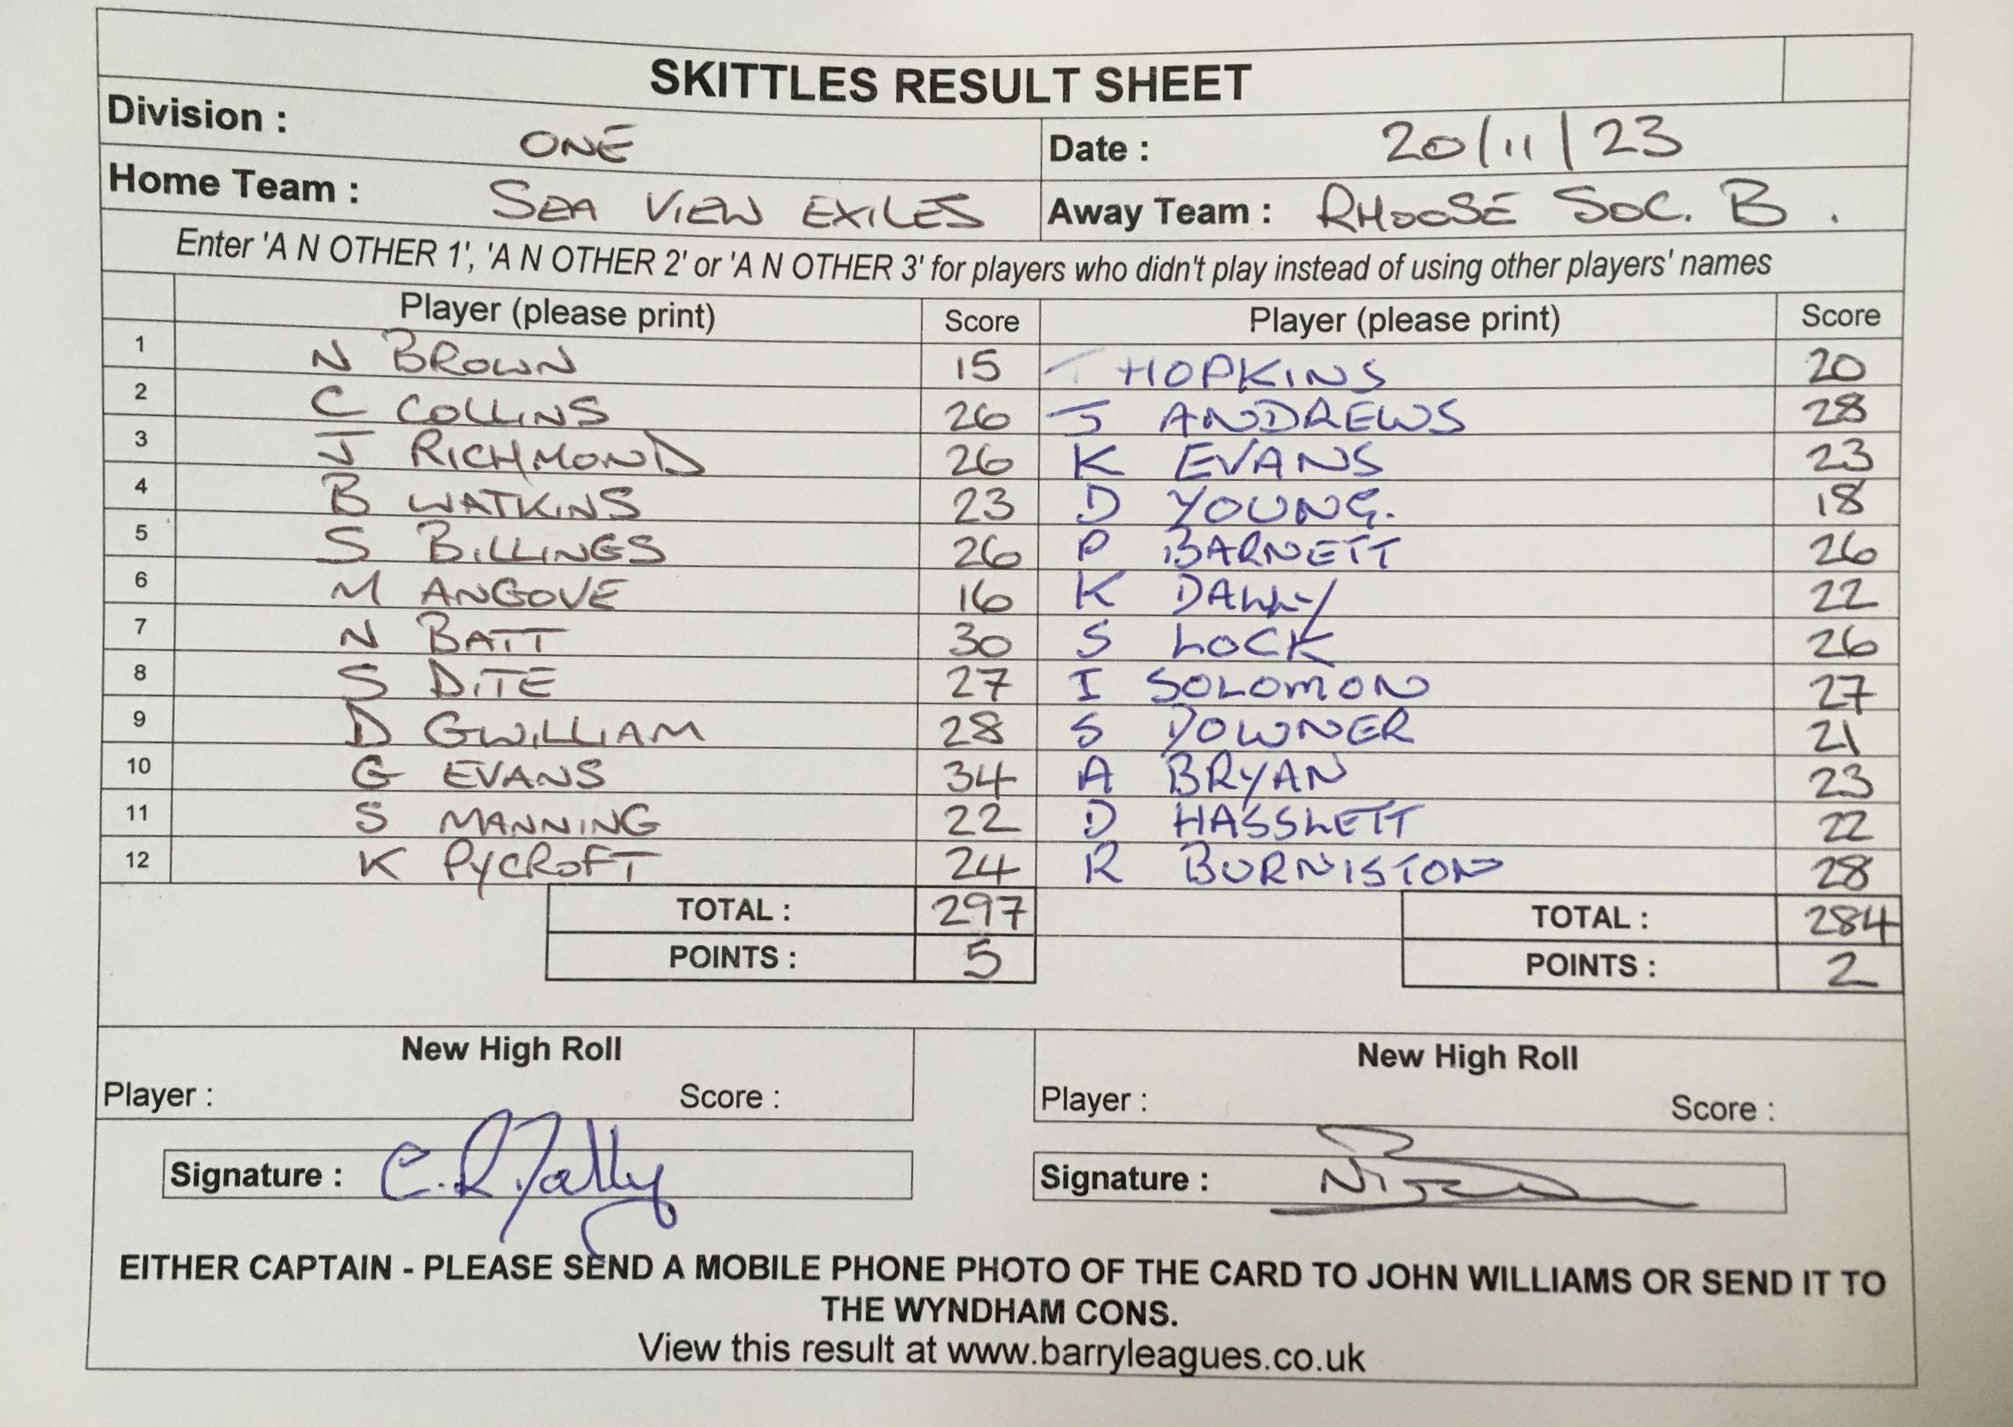 SKITTLES RESULT SHEET
Division : ONE Date : 20/11/23
Home Team : SEA VIEW EXILES Away Team : RHOOSE SOC. B.
Enter 'A N OTHER 1', 'A N OTHER 2' or 'A N OTHER 3' for players who didn't play instead of using other players' names
Player (please print) Score Player (please print) Score
1 N BROWN 15 HOPKINS 20
2 C COLLINS 26 J ANDREWS 28
3 J RICHMOND 26 K EVANS 23
4 B WATKINS 23 D YOUNG. 18
5 S BILLINGS 26 P BARNETT 26
6 M ANGOVE 16 K 22
7 N BATT 30 S LOCK 26
8 S DITE 27 I SOLOMON 27
9 D GWILLIAM 28 S DOWNER 21
10 G EVANS 34 A BRYAN 23
11 S MANNING 22 D HASSLETT 22
12 K PYCROFT 24 R BURNISTON 28
TOTAL : 297 TOTAL : 284
POINTS : 5 POINTS : 2
New High Roll New High Roll
Player : Score : Player : Score :
Signature : Signature :
EITHER CAPTAIN - PLEASE SEND A MOBILE PHONE PHOTO OF THE CARD TO JOHN WILLIAMS OR SEND IT TO
THE WYNDHAM CONS.
View this result at www.barryleagues.co.uk